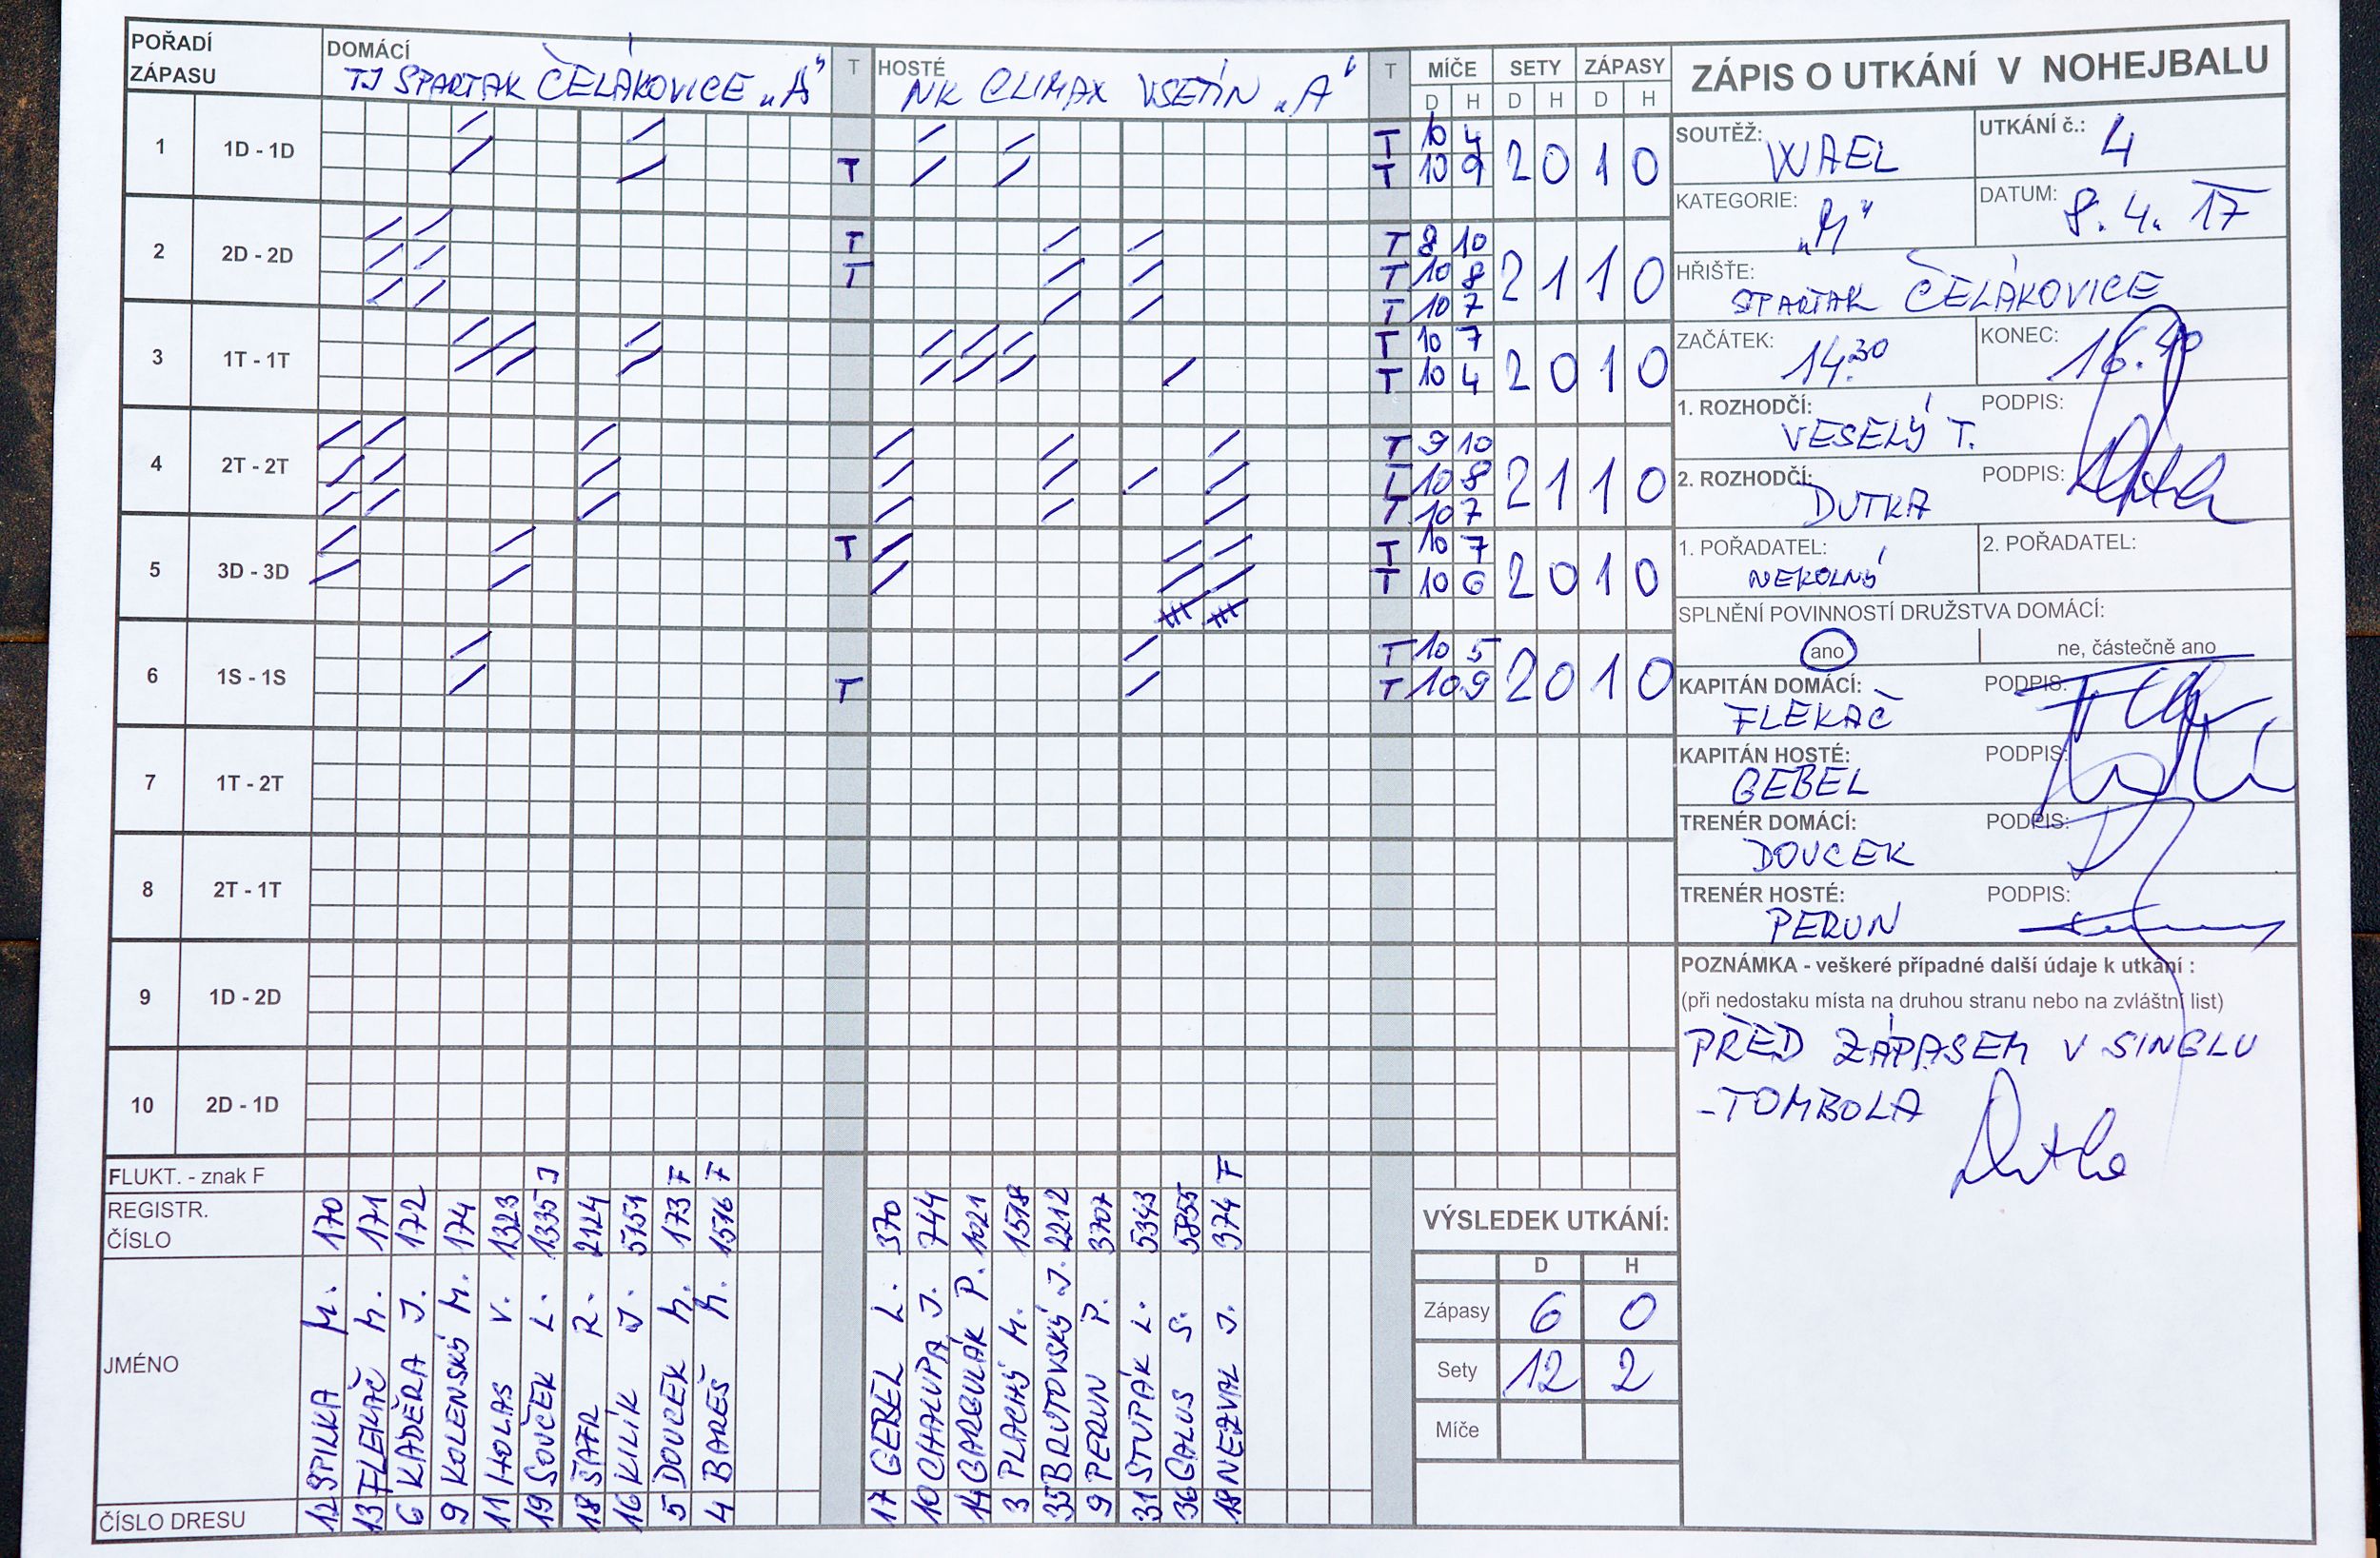 POŘADÍ ZÁPASU
DOMÁCÍ
TJ SPARTAK ČELÁKOVICE „A"
T
HOSTÉ
NK CLIMAX VSETÍN „A"
T
MÍČE SETY ZÁPASY
D H D H D H
1 1D - 1D
T T
10 4
10 9
2 0 1 0
2 2D - 2D
T T T T T
8 10
10 8
10 7
2 1 1 0
3 1T - 1T
T T
10 7
10 4
2 0 1 0
4 2T - 2T
T T T
9 10
10 8
10 7
2 1 1 0
5 3D - 3D
T T T
10 7
10 6
2 0 1 0
6 1S - 1S
T T T
10 5
10 9
2 0 1 0
7 1T - 2T
8 2T - 1T
9 1D - 2D
10 2D - 1D
FLUKT. - znak F
J F F F
REGISTR. ČÍSLO
170 171 172 174 1323 1335 2124 5151 173 1516
370 744 1021 1518 2212 3707 5343 5855 374
JMÉNO
SPILKA M.
FLEKAČ M.
KADEŘA J.
KOLENSKÝ M.
HOLAS V.
SOUČEK L.
ŠAFR R.
KILÍK J.
DOUCEK M.
BAREŠ M.
GEBEL L.
CHALUPA J.
GARGULÁK P.
PLACHÝ M.
BRUTOVSKÝ J.
PERUN P.
STUPÁK L.
GALUS S.
NEZVAL J.
ČÍSLO DRESU
12 13 6 9 11 19 18 16 5 4
17 10 14 3 35 9 31 36 18
ZÁPIS O UTKÁNÍ V NOHEJBALU
SOUTĚŽ: WAEL
UTKÁNÍ č.: 4
KATEGORIE: „M"
DATUM: 8. 4. 17
HŘIŠTE: SPARTAK ČELÁKOVICE
ZAČÁTEK: 14:30
KONEC: 16.40
1. ROZHODČÍ: VESELÝ T.
PODPIS:
2. ROZHODČÍ: DUTKA
PODPIS:
1. POŘADATEL: NEKOLNÝ
2. POŘADATEL:
SPLNĚNÍ POVINNOSTÍ DRUŽSTVA DOMÁCÍ:
ano
ne, částečně ano
KAPITÁN DOMÁCÍ: FLEKAČ
PODPIS:
KAPITÁN HOSTÉ: GEBEL
PODPIS:
TRENÉR DOMÁCÍ: DOUCEK
PODPIS:
TRENÉR HOSTÉ: PERUN
PODPIS:
POZNÁMKA - veškeré případné další údaje k utkání :
(při nedostaku místa na druhou stranu nebo na zvláštní list)
PŘED ZÁPASEM V SINGLU
- TOMBOLA
VÝSLEDEK UTKÁNÍ:
D H
Zápasy 6 0
Sety 12 2
Míče